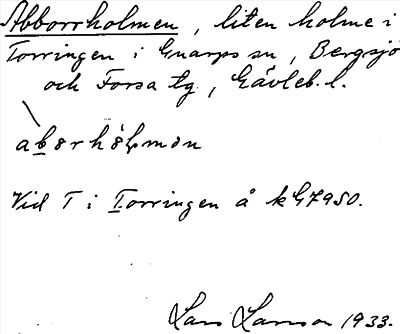 Abborrholmen, liten holme i
Torringen i Gnarps sn, Bergsjö
och Forsa tg, Gävleb. l.
Vid T i Torringen å kG7950.
Lars Larsson 1933.